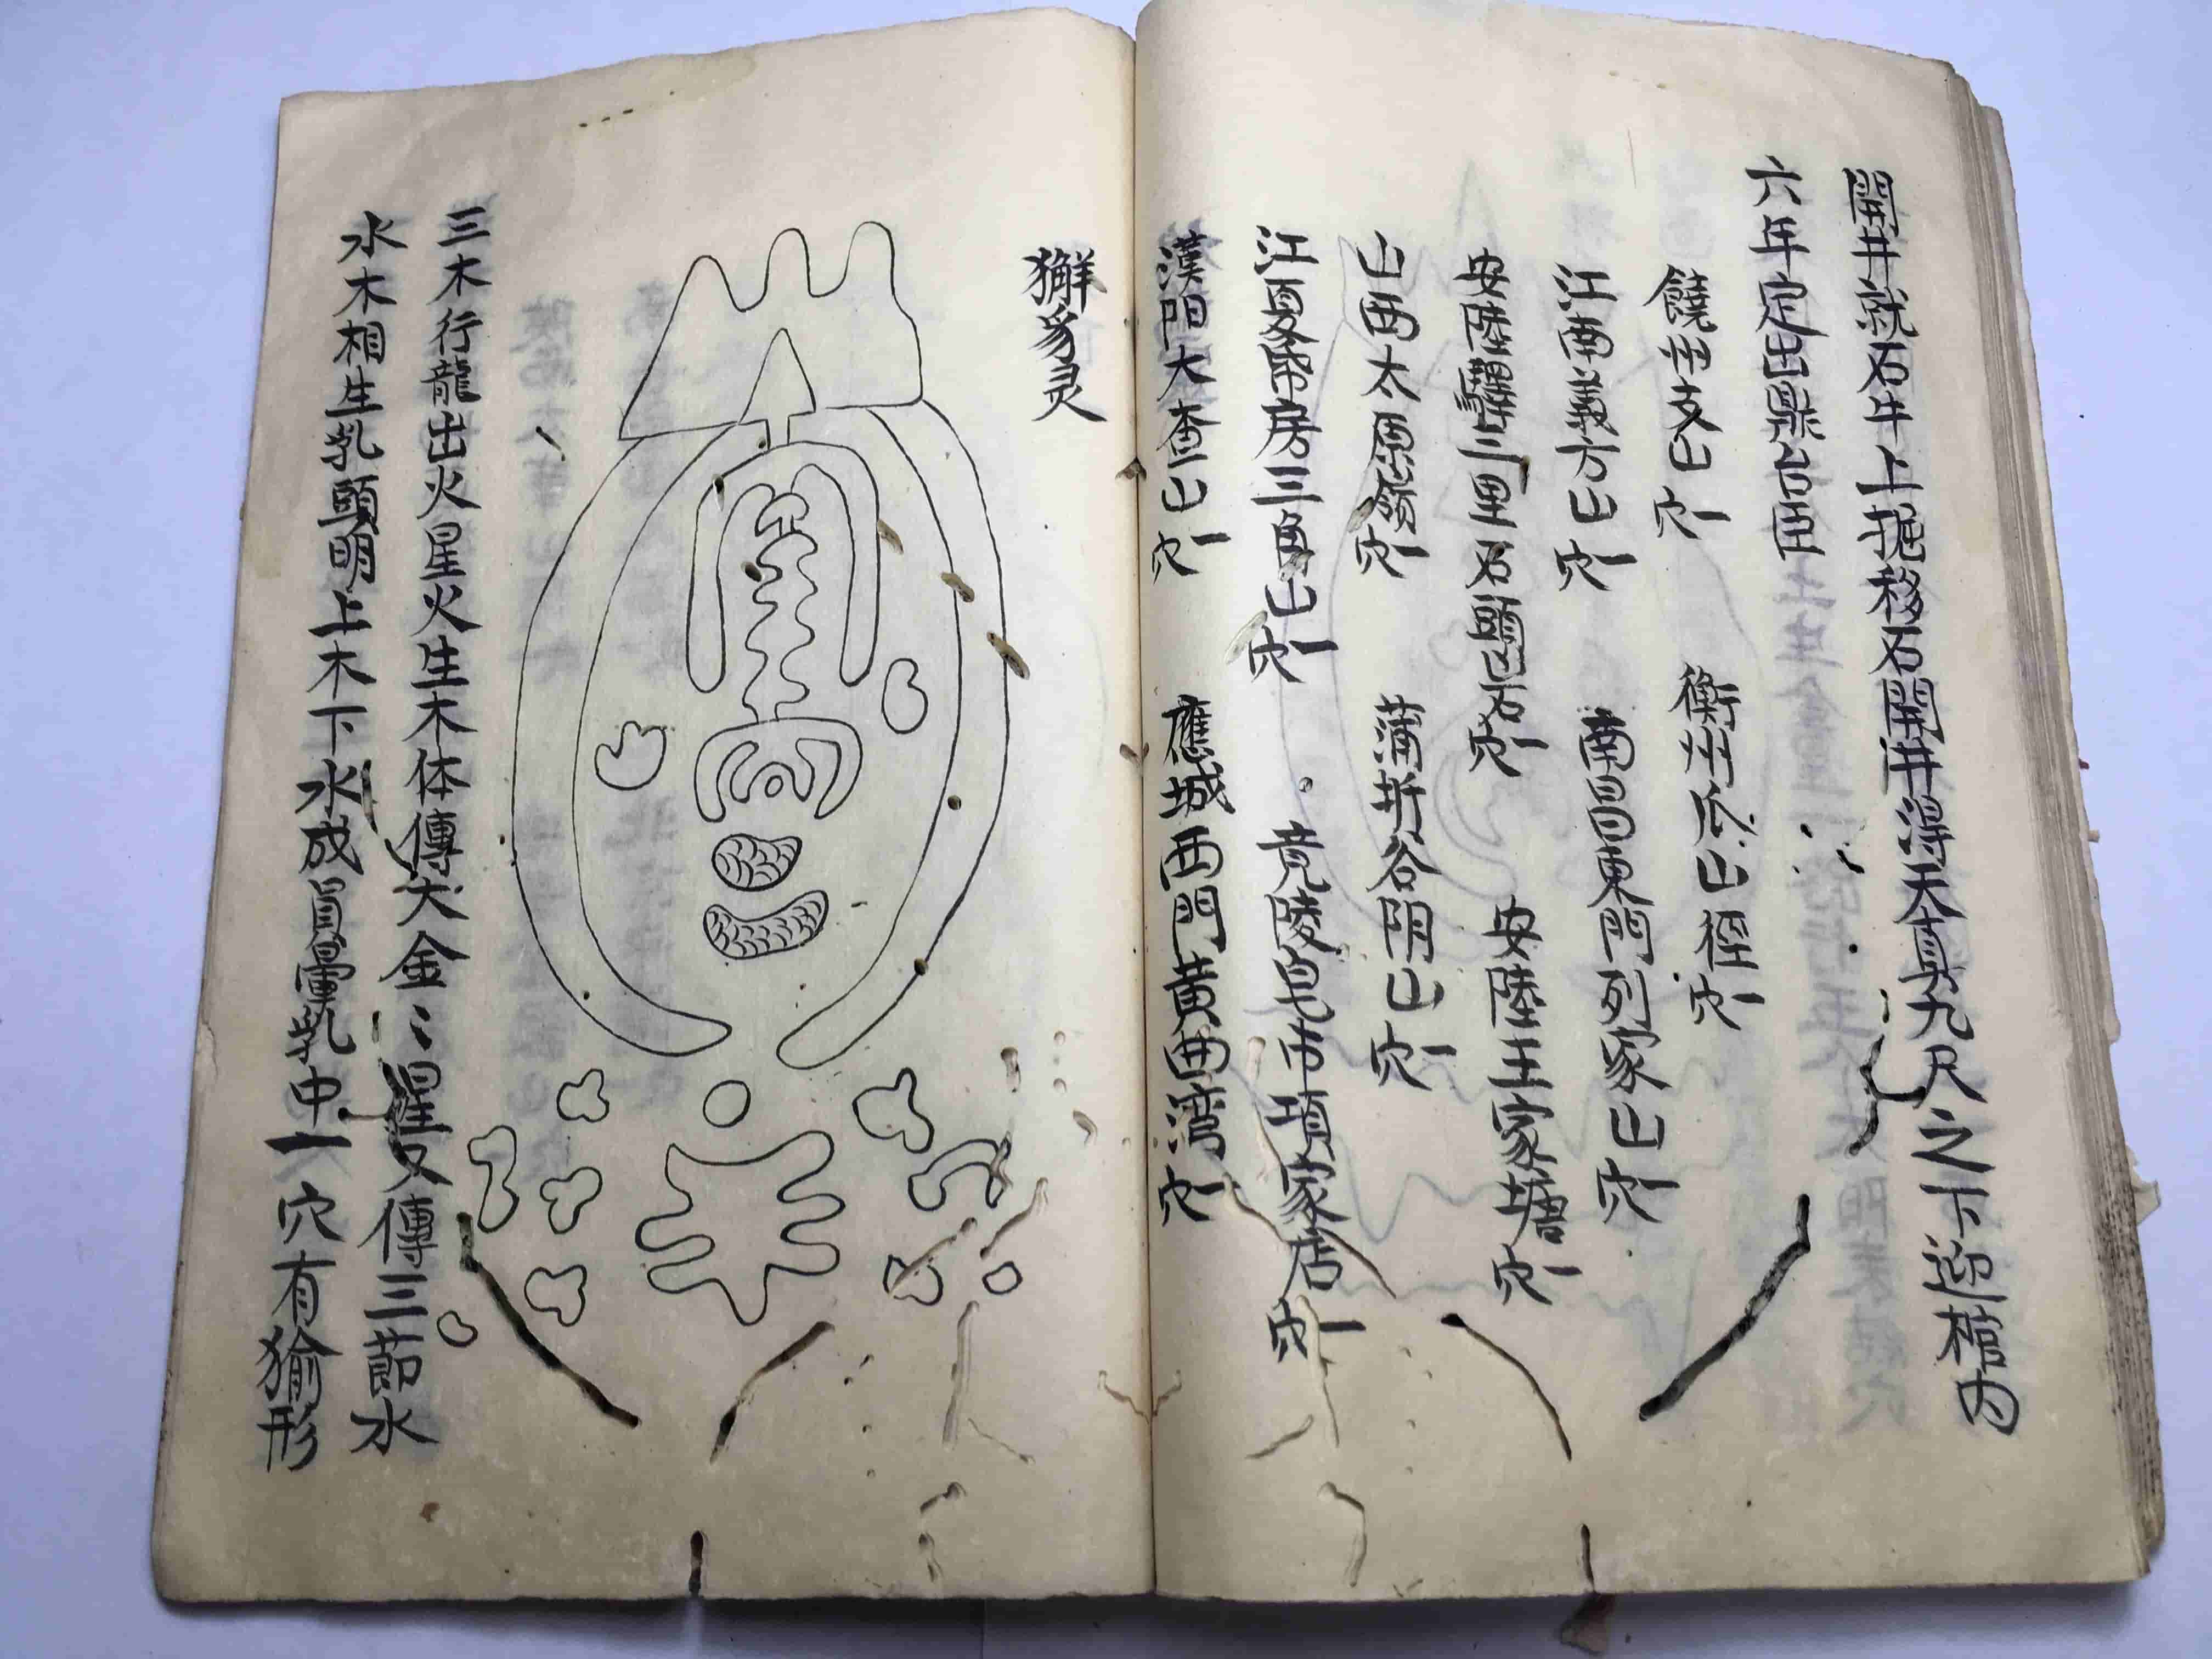 開井就石牛上掘移石開井得天真九尺之下迎棺內
六年定出梟台臣
饒州支山一穴
衡州瓜山徑一穴
江西義方山一穴
南昌東門列家山一穴
安陸驛三里石鷂山右一穴
安陸王家塘一穴
山西太原嶺一穴
蒲圻谷阴山一穴
江夏房三角山一穴
竟陵皂市項家店一穴
漢阳大查山一穴
應城西門黄西湾一穴
獬豸灵
三木行龍出火星火生木体傳大金：星又傳三節水
水木相生乳頭明上木下水成員暈乳中一穴有猾形